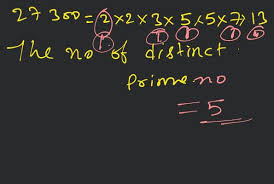 27300 = 2×2×3×5×5×7×13
1 1 1 1 1
The no of distinct
prime no
= 5